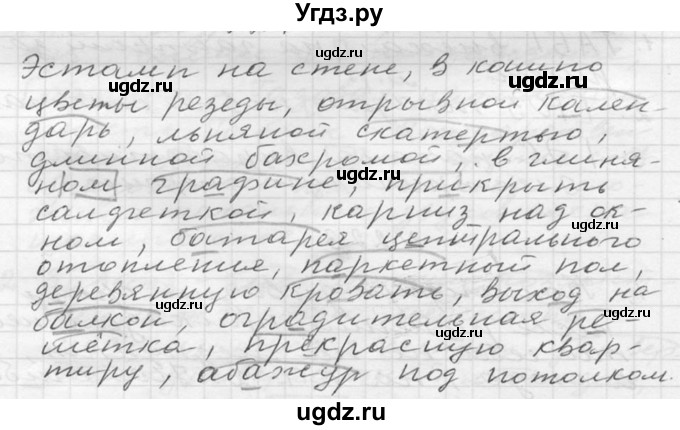 Угдз.ру
Эстамп на стене, в кашпо
цветы резеды, отрывной кален-
дарь, льняной скатертью,
длинной бахромой, в глиня-
ном графине, прикрыть
салфеткой, карниз над ок-
ном, батарея центрального
отопления, паркетный пол,
деревянную кровать, выход на
балкон, оградительная ре-
шётка, прекрасную квар-
тиру, абажур под потолком.
ugdz.ru
ugdz.ru
ugdz.ru
ugdz.ru
ugdz.ru
ugdz.ru
ugdz.ru
ugdz.ru
ugdz.ru
ugdz.ru
ugdz.ru
ugdz.ru
ugdz.ru